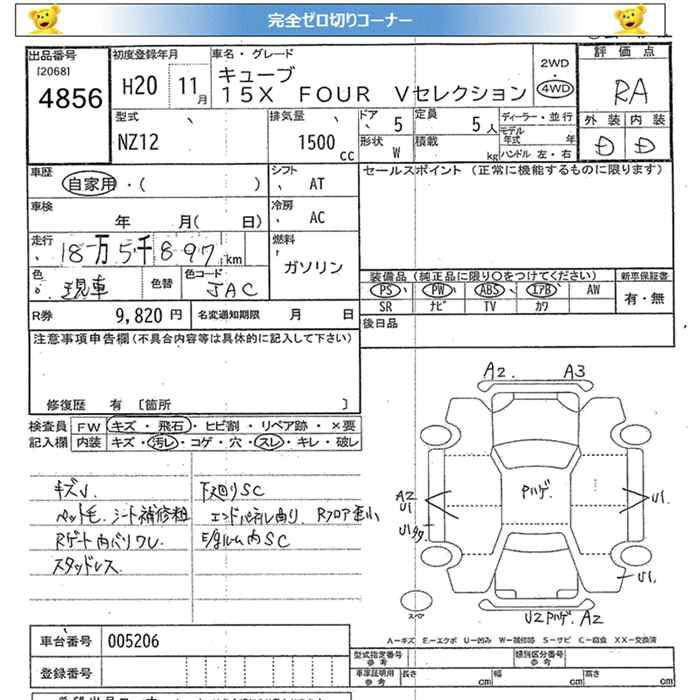 完全ゼロ切りコーナー
出品番号
[2068]
4856
初度登録年月
H20 11月
車名・グレード
キューブ
15X FOUR Vセレクション
2WD
4WD
評価点
RA
外装 内装
D D
型式
NZ12
排気量
1500
cc
ドア 5
形状 W
定員
5人
積載
kg
ディーラー・並行
モデル年式 年
ハンドル 左・右
車歴
自家用・( )
シフト
AT
車検
年 月( 日)
冷房
AC
走行
18万5千897km
燃料
ガソリン
色
現車
色替
色コード
JAC
セールスポイント (正常に機能するものに限ります)
装備品 (純正品に限り○をつけてください)
新車保証書
PS PW ABS エアB AW
有・無
SR ナビ TV カワ
R券 9,820 円
名変通知期限 月 日
後日品
注意事項申告欄 (不具合内容等は具体的に記入して下さい)
修復歴 有 [箇所 ]
検査員記入欄
FW キズ・飛石・ヒビ割・リペア跡・×要
内装 キズ・汚レ・コゲ・穴・スレ・キレ・破レ
キズU.
ペット毛. シート補修粗
Rゲート内バリワレ.
スタッドレス.
下廻りSC
エンドパネル曲り. Rフロア歪小
E/gルーム内SC
A2. A3
Pハゲ.
A2
U1
U1
U1.
U1.
スペア
U2 Pハゲ. A2
A―キズ E―エクボ U―凹み W―補修跡 S―サビ C―腐食 XX―交換済
車台番号 005206
登録番号
型式指定番号
参考
類別区分番号
参考
車庫証明用
参考
長さ cm 幅 cm 高さ cm